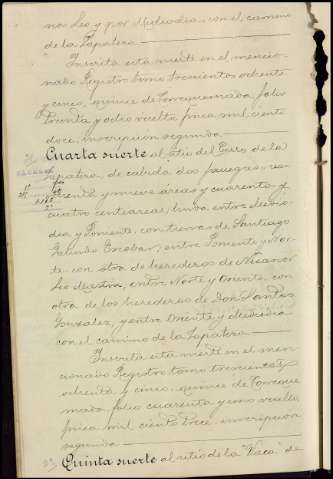 no Leo y por Mediodia, con el camino
de la Zapatera
Inscrita esta suerte en el mencio-
nado Registro tomo trescientos ochenta
y cinco, quince de Torrequemada, folio
treinta y ocho vuelto, finca mil ciento
doce, inscripcion segunda
Cuarta suerte al sitio del Cerro de la
Zapatera, de cabida dos fanegas,
y nueve areas y cuarenta y
cuatro centiareas; linda entre Medio-
dia y Poniente, con tierras de Santiago
Galindo Escobar, entre Poniente y Nor-
te con otra de herederos de Nicanor
entre Norte y Oriente, con
otra de los herederos de Don Santos
Gonzalez, y entre Oriente y Mediodia
con el camino de la Zapatera
Inscrita esta suerte en el men-
cionado Registro tomo trescientos
ochenta y cinco, quince de Torreque-
mada, folio cuarenta y uno vuelto,
finca mil ciento trece, inscripcion
segunda
Quinta suerte al sitio de la "Vaca" de